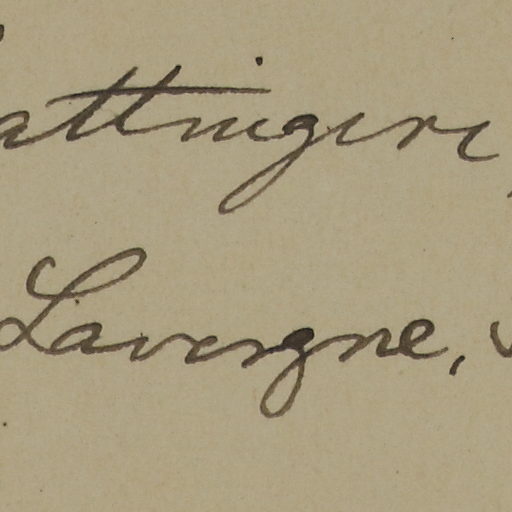 attingeri
Lavergne,